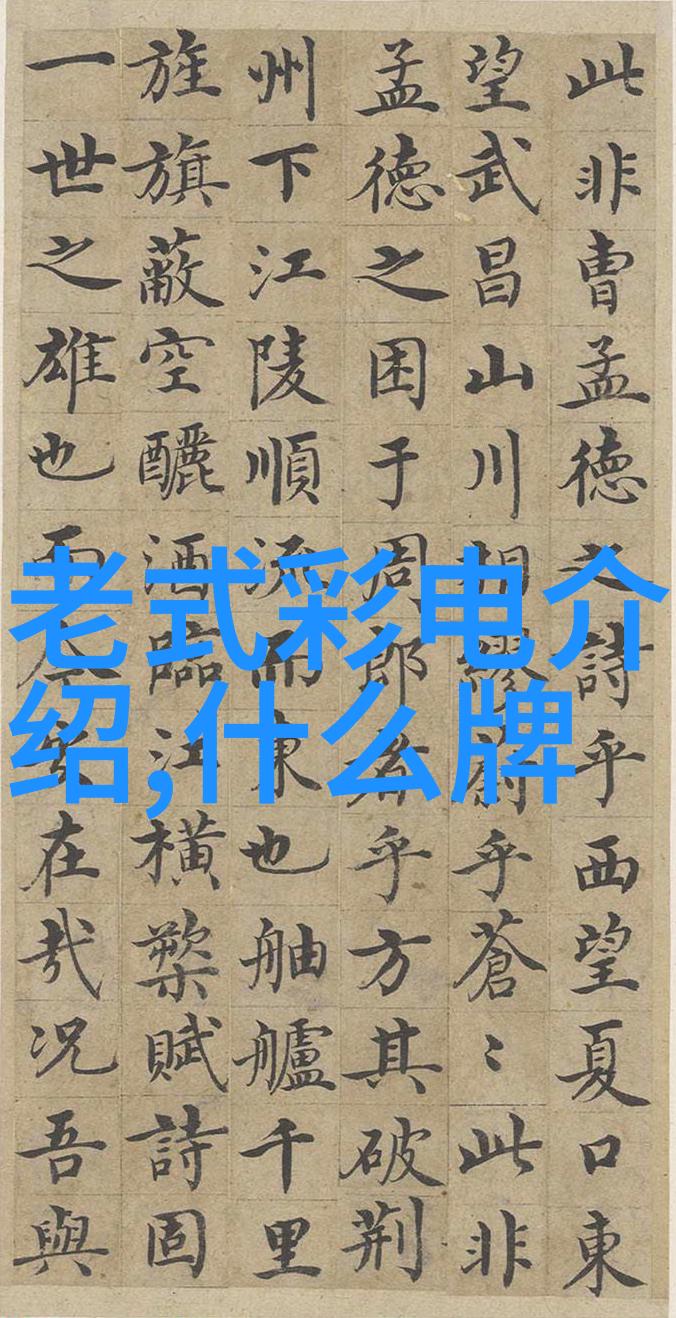 此非曹孟德之詩乎西望夏口東
望武昌山川相繆乎蒼〻此非
孟德之困于周郎者乎方其破荆
州下江陵順流而東也舳艫千里
旌旗蔽空釃酒臨江横槊賦詩固
一世之雄也而今安在哉况吾與
老式彩电介
绍,什么牌